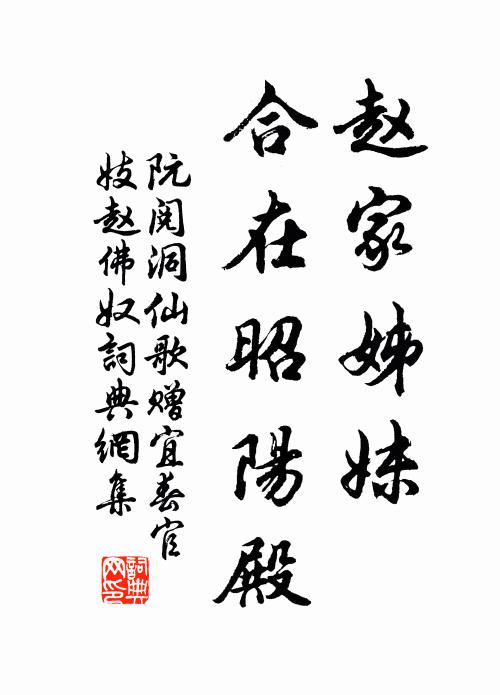 赵家姊妹
合在昭陽殿
阮阅洞仙歌赠宜春官
妓赵佛奴詞典網集
詞典
网印